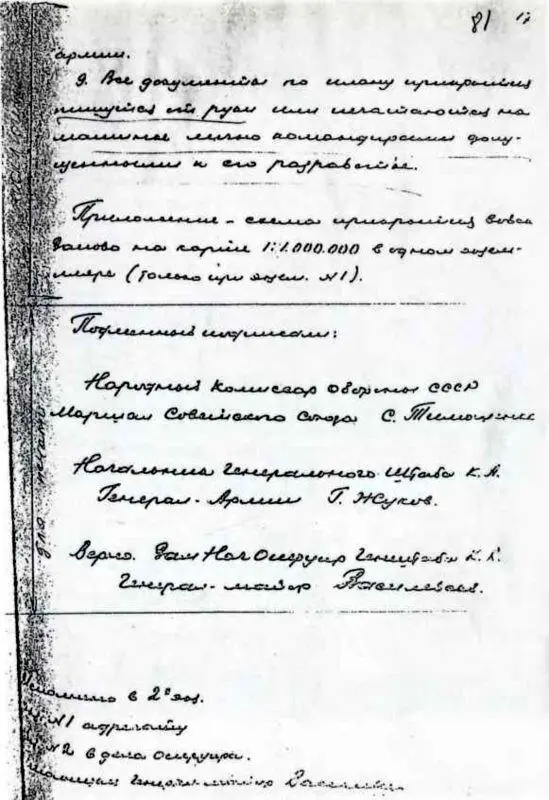 81
армии.
9. Все документы по плану прикрытия
пишутся от руки или печатаются на
машинке лично командирами допу-
щенными к его разработке.
Приложение - схема прикрытия
на карте 1:1.000.000 в одном экзем-
пляре (только при экзем. №1).
Подлинный подписали:
Народный Комиссар Обороны СССР
Маршал Советского Союза С. Тимошенко
Начальник Генерального Штаба К.А.
Генерал-Армии Г. Жуков.
Верно. Зам Нач Оперупр Генштаба К.А.
Генерал-майор Василевский.
в 2х экз.
№1 адресату
№2 в дело Оперупра.
Генерал-майор Василевский